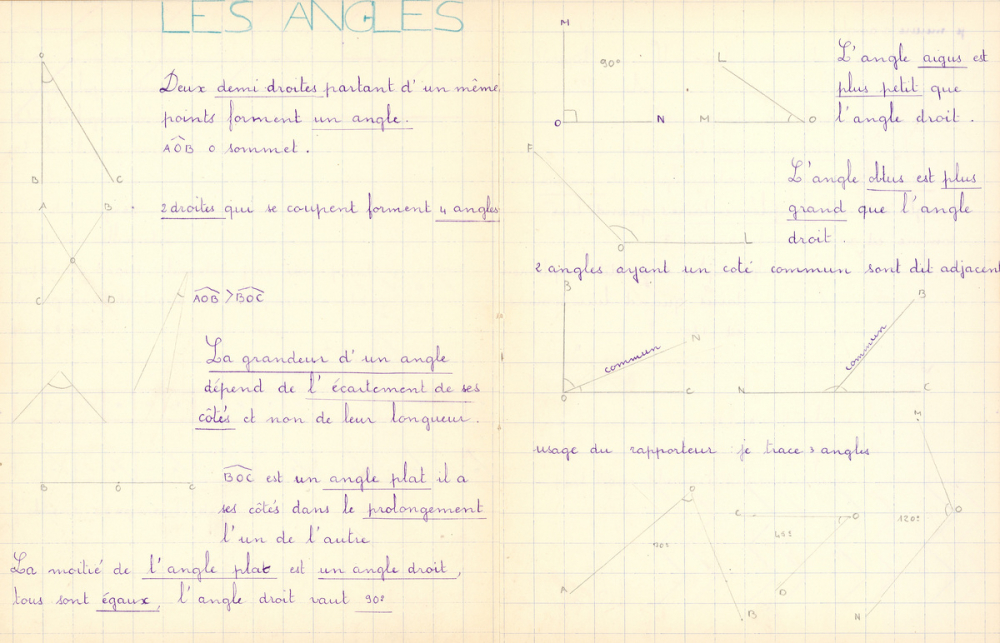 LES ANGLES
O
Deux demi droites partant d'un même
points forment un angle.
AOB O sommet.
B C
A B
2 droites qui se coupent forment 4 angles
O
C D
AOB > BOC
La grandeur d'un angle
dépend de l'écartement de ses
côtés et non de leur longueur.
B O C
BOC est un angle plat il a
ses côtés dans le prolongement
l'un de l'autre
La moitié de l'angle plat est un angle droit,
tous sont égaux, l'angle droit vaut 90°
M
90°
O N
L
M O
L'angle aigus est
plus petit que
l'angle droit.
F
O L
L'angle obtus est plus
grand que l'angle
droit.
2 angles ayant un coté commun sont dit adjacent
B
N
commun
O C
B
commun
N C
usage du rapporteur je trace 3 angles
O
70°
A B
C O
45°
D
M
120° O
N